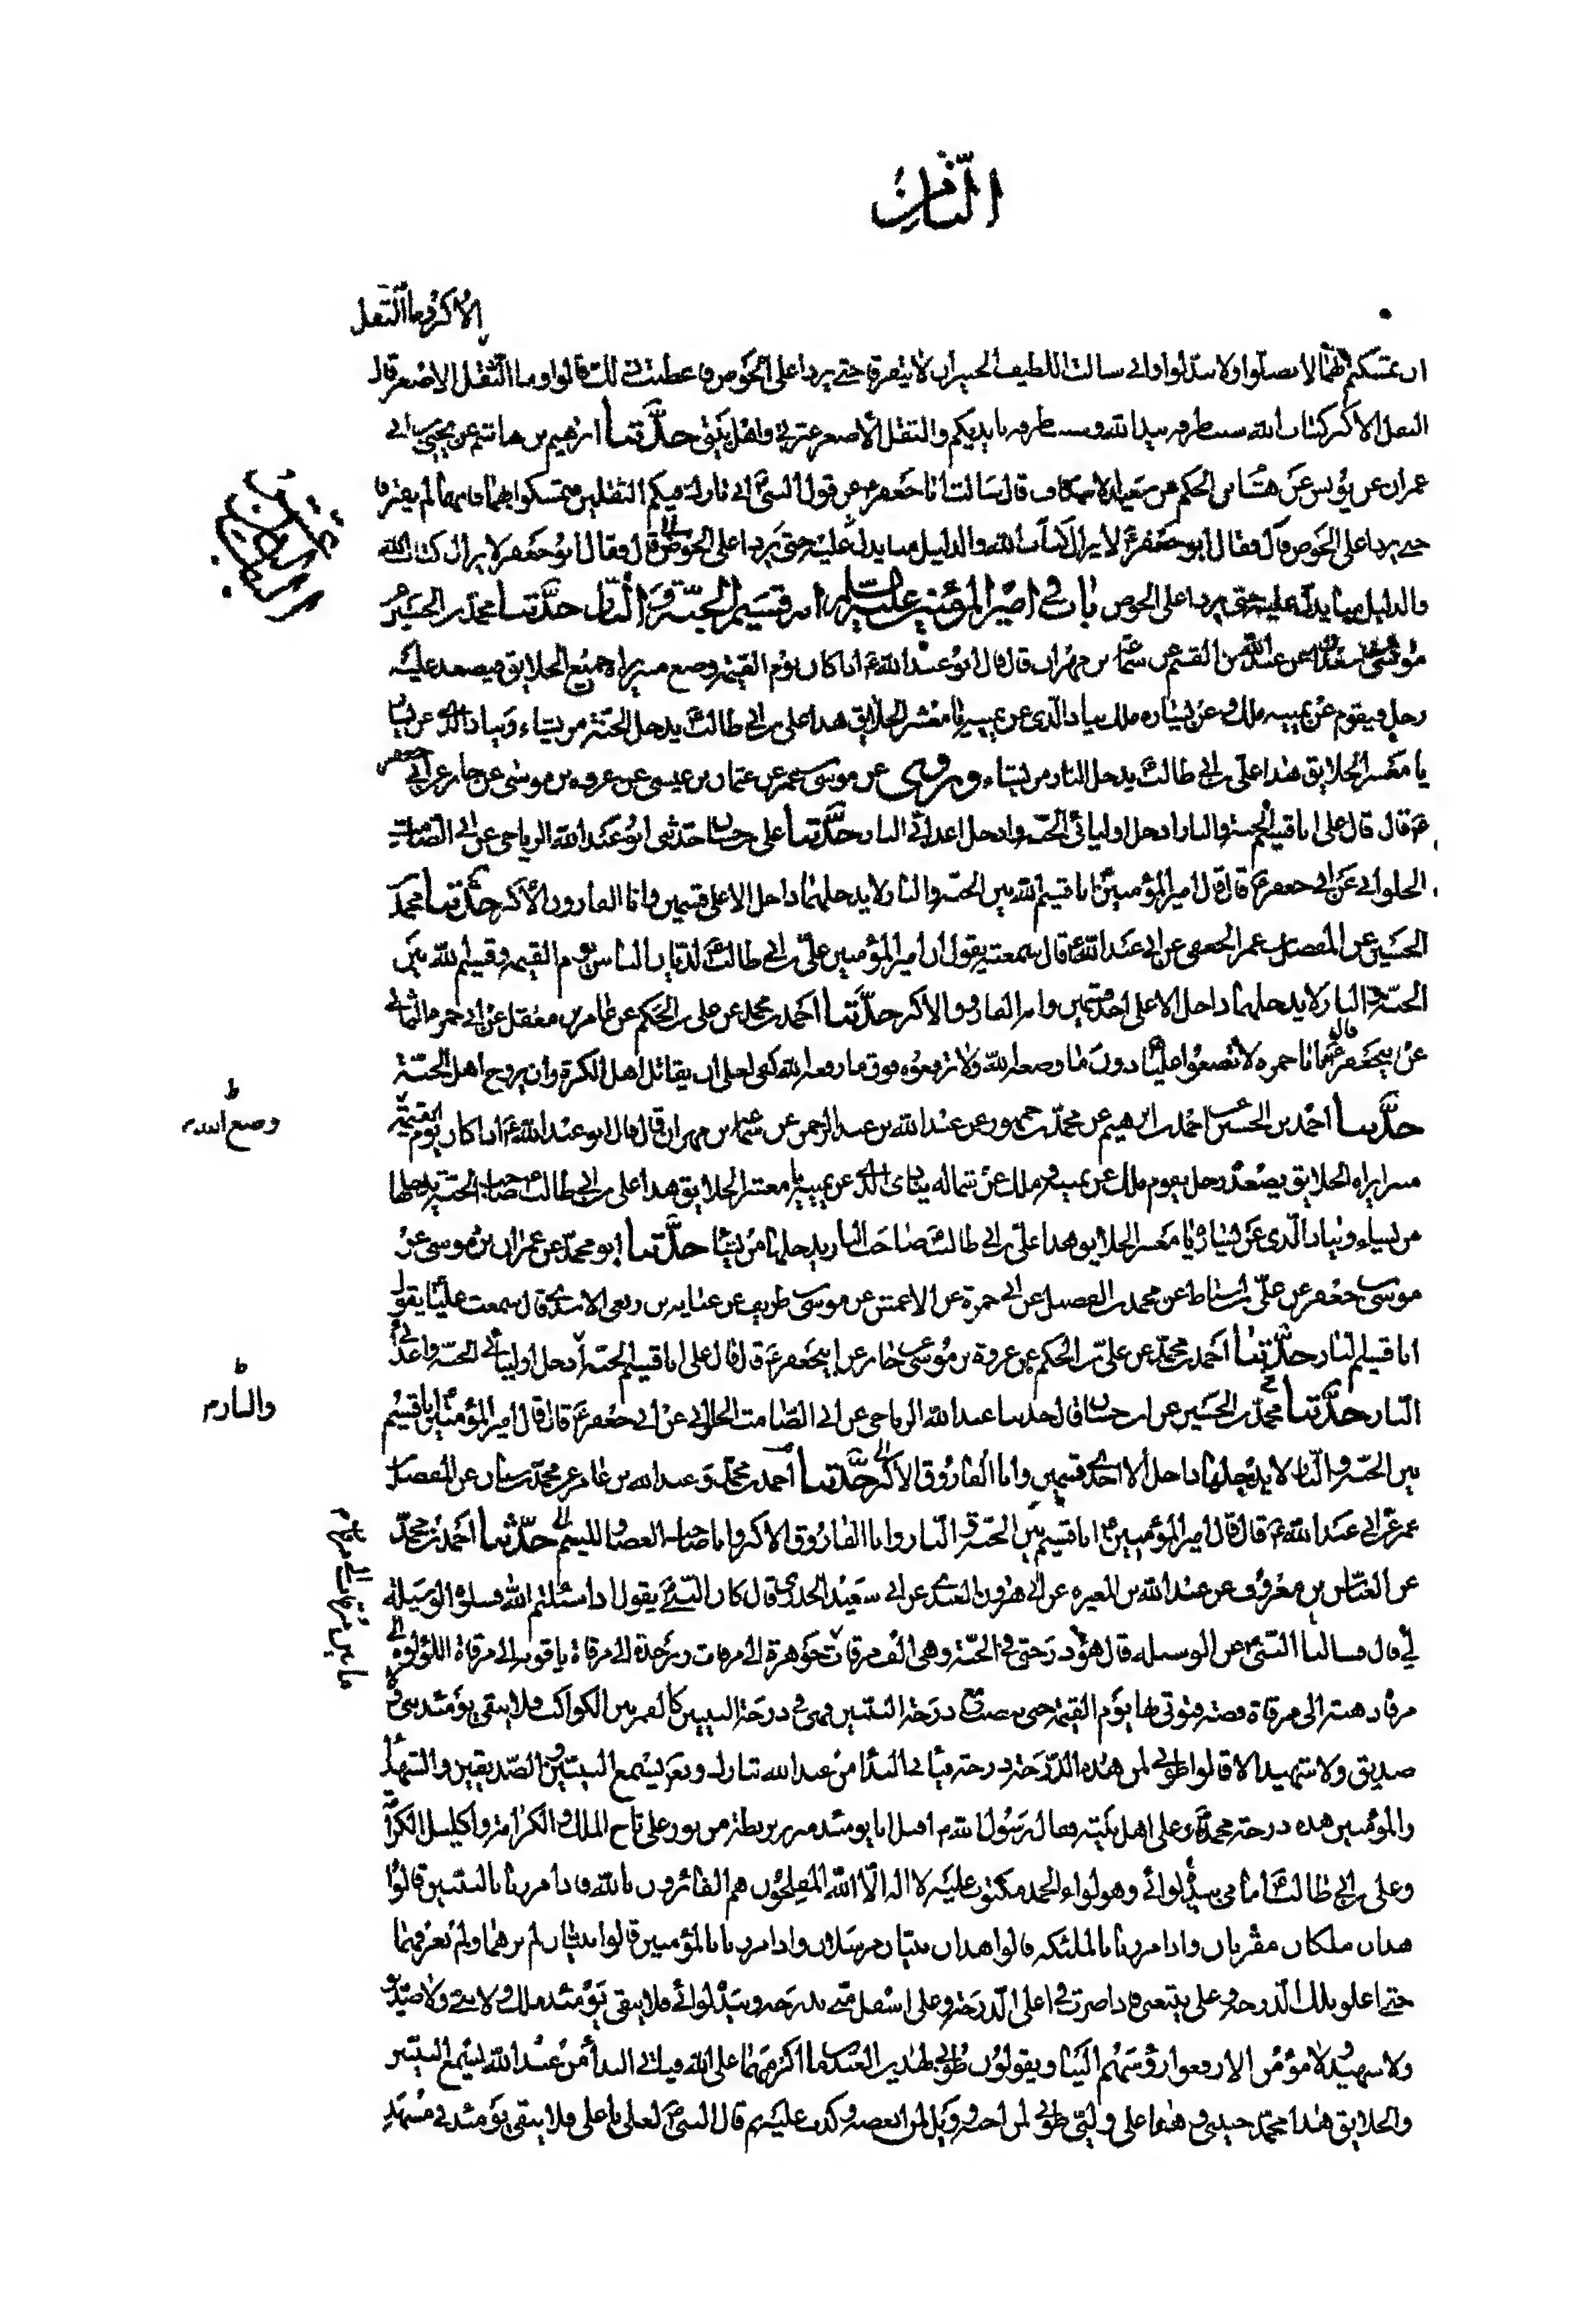 الثامن
الاكبر وما الثقل
ان تمسكتم بهما لا تضلوا ولا تبدلوا واني سالت اللطيف الخبير ان لا يتفرقا حتى يردا على الحوض فاعطيت ذلك قالوا وما الثقل الاصغر قال
الثقل الاكبر كتاب الله سبب طرفه بيد الله وسبب طرفه بايديكم والثقل الاصغر عترتي واهل بيتي حدثنا ابرهيم بن هاشم عن يحيى بن ابي
عمران عن يونس عن هشام بن الحكم عن سعد الاسكاف قال سالت ابا جعفر ع عن قول النبي اني تارك فيكم الثقلين فتمسكوا بهما فانهما لم يفترقا
حتى يردا على الحوض قال فقال ابو جعفر ع لا يزال كتاب الله والدليل منا يدل عليه حتى يردا على الحوض قال فقال ابو جعفر لا يزال كتاب الله
والدليل منا يدل عليه حتى يردا على الحوض باب في امير المؤمنين عليه السلام انه قسيم الجنة والنار حدثنا محمد بن الحسين عن
موسى بن سعدان عن عبد الله بن القسم عن سماعة بن مهران قال قال ابو عبد الله ع اذا كان يوم القيمة وضع منبر يراه جميع الخلايق فيصعد عليه
رجل فيقوم عن يمينه ملك وعن يساره ملك ينادي الذي عن يمينه يا معشر الخلايق هذا علي بن ابي طالب يدخل الجنة من يشاء وينادي الذي عن يساره
يا معشر الخلايق هذا علي بن ابي طالب يدخل النار من يشاء وروى عن موسى بن عمر عن عثمان بن عيسى عن عروة بن موسى عن جابر عن ابي جعفر
ع قال قال علي انا قسيم الجنة والنار ادخل اوليائي الجنة وادخل اعدائي النار حدثنا علي بن حسان حدثني ابو عبد الله الرياحي عن ابي الصامت
الحلواني عن ابي جعفر ع قال قال امير المؤمنين انا قسيم الله بين الجنة والنار لا يدخلهما داخل الا على قسمين وانا الفاروق الاكبر حدثنا محمد بن
الحسين عن المفضل بن عمر الجعفي عن ابي عبد الله ع قال سمعته يقول ان امير المؤمنين علي بن ابي طالب لديان الناس يوم القيمة وقسيم الله بين
الجنة والنار لا يدخلهما داخل الا على احد قسمين وانه الفاروق الاكبر حدثنا احمد بن محمد عن علي بن الحكم عن عامر بن معقل عن ابي حمزة الثمالي
عن ابي جعفر ع قال قال يا ابا حمزة لا تضعوا عليا دون ما وضعه الله ولا ترفعوه فوق ما رفعه الله كفى لعلي ان يقاتل اهل الكرة وان يزوج اهل الجنة
وضع الله م
حدثنا احمد بن الحسين عن احمد بن ابرهيم عن محمد بن جمهور عن عبد الله بن عبد الرحمن عن سماعة بن مهران قال قال ابو عبد الله ع اذا كان يوم القيمة
منبر يراه الخلايق يصعده رجل يقوم ملك عن يمينه وملك عن شماله ينادي الذي عن يمينه يا معشر الخلايق هذا علي بن ابي طالب صاحب الجنة يدخلها
من يشاء وينادي الذي عن يساره يا معشر الخلايق هذا علي بن ابي طالب صاحب النار يدخلها من يشاء حدثنا ابو محمد عن عمران بن موسى عن
موسى بن جعفر عن علي بن اسباط عن محمد بن الفضيل عن ابي حمزة عن الاعمش عن موسى بن طريف عن عباية بن ربعي الاسدي قال سمعت عليا يقول
انا قسيم النار حدثنا احمد بن محمد عن علي بن الحكم عن عروة بن موسى عن جابر عن ابي جعفر ع قال قال علي انا قسيم الجنة ادخل اوليائي الجنة واعدائي
والنار م
النار حدثنا محمد بن الحسين عن ابن حسان قال حدثنا عبد الله الرياحي عن ابي الصامت الحلواني عن ابي جعفر ع قال قال امير المؤمنين انا قسيم
بين الجنة والنار لا يدخلها داخل الا احدى قسمين وانا الفاروق الاكبر حدثنا احمد بن محمد وعبد الله بن عامر عن محمد بن سنان عن المفضل بن
عمر عن ابي عبد الله ع قال قال امير المؤمنين ع انا قسيم بين الجنة والنار وانا الفاروق الاكبر وانا صاحب العصا والميسم حدثنا احمد بن محمد
عن العباس بن معروف عن عبد الله بن المغيرة عن ابي هرون العبدي عن ابي سعيد الخدري قال كان النبي يقول اذا سئلتم الله فسلوه الوسيلة
لي قال فسالنا النبي عن الوسيلة قال هو درجتي في الجنة وهي الف مرقاة جوهرة الى مرقاة زبرجدة الى مرقاة ياقوتة الى مرقاة اللؤلؤة الى
مرقاة ذهبة الى مرقاة فضة فيؤتى بها يوم القيمة حتى تنصب مع درجة النبيين فهي في درجة النبيين كالقمر بين الكواكب فلا يبقى يومئذ نبي ولا
صديق ولا شهيد الا قالوا طوبى لمن هذه الدرجة درجته فياتي النداء من عند الله تبارك وتعالى يسمع النبيين والصديقين والشهداء
والمؤمنين هذه درجة محمد وعلى اهل بيته فقال رسول الله ص اقبل انا يومئذ متزر بريطة من نور على تاج الملك والكرامة واكليل الكرامة
وعلي بن ابي طالب امامي بيده لوائي وهو لواء الحمد مكتوب عليه لا اله الا الله المفلحون هم الفائزون بالله فاذا مررنا بالنبيين قالوا
هذان ملكان مقربان واذا مررنا بالملئكة قالوا هذان نبيان مرسلان واذا مررنا بالمؤمنين قالوا نبيان لم نرهما ولم نعرفهما
حتى اعلو تلك الدرجة وعلي يتبعني فاذا صرت في اعلى الدرجة وعلي اسفل مني بدرجة وبيده لوائي فلا يبقى يومئذ ملك ولا نبي ولا صديق
ولا شهيد ولا مؤمن الا رفعوا رؤسهم الينا ويقولون طوبى لهذين العبدين ما اكرمهما على الله فياتي النداء من عند الله يسمع النبيين
والخلايق هذا محمد حبيبي وهذا علي وليي طوبى لمن احبه وويل لمن ابغضه وكذب عليه ثم قال النبي ص لعلي يا علي فلا يبقى يومئذ في مشهد